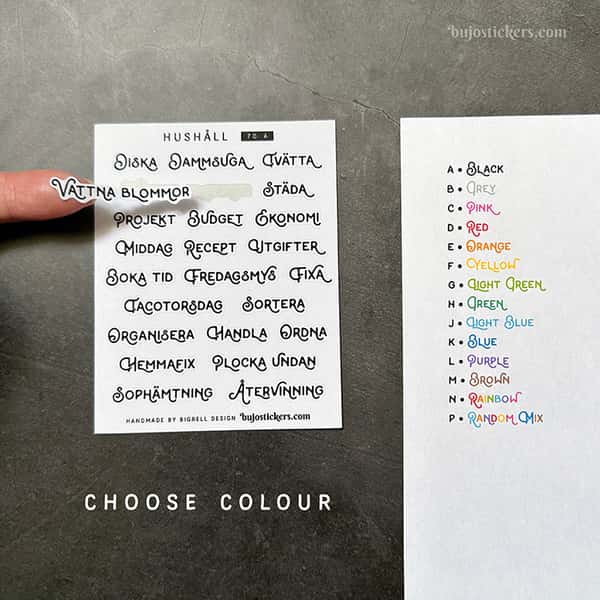 bujostickers.com
HUSHÅLL 70 A
DISKA DAMMSUGA TVÄTTA
VATTNA BLOMMOR STÄDA
PROJEKT BUDGET EKONOMI
MIDDAG RECEPT UTGIFTER
BOKA TID FREDAGSMYS FIXA
TACOTORSDAG SORTERA
ORGANISERA HANDLA ORDNA
HEMMAFIX PLOCKA UNDAN
SOPHÄMTNING ÅTERVINNING
HANDMADE BY BIGRELL DESIGN bujostickers.com
A • BLACK
B • GREY
C • PINK
D • RED
E • ORANGE
F • YELLOW
G • LIGHT GREEN
H • GREEN
J • LIGHT BLUE
K • BLUE
L • PURPLE
M • BROWN
N • RAINBOW
P • RANDOM MIX
CHOOSE COLOUR